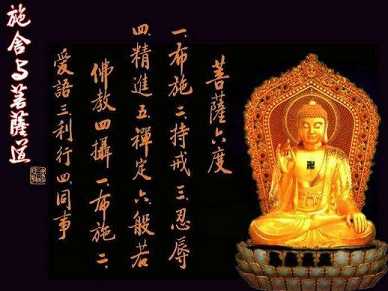 施舍与菩薩道
菩薩六度
一.布施二.持戒三.忍辱
四.精進五.禪定六.般若
佛教四攝一.布施二.
愛語三.利行四.同事